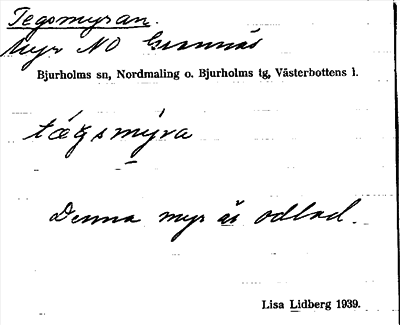 Tegsmyran.
Myr NO Grannäs
Bjurholms sn, Nordmaling o. Bjurholms tg, Västerbottens l.
tægsmýra
Denna myr är odlad.
Lisa Lidberg 1939.